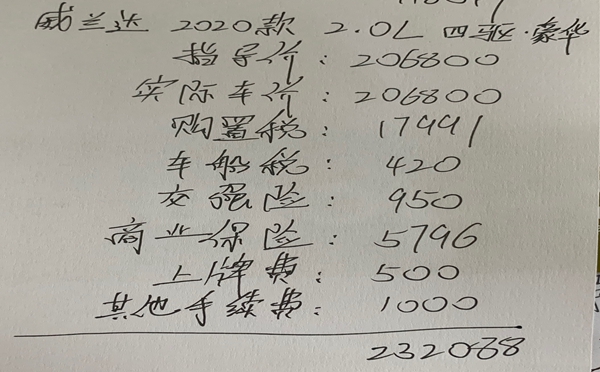 威兰达 2020款 2.0L 四驱·豪华
指导价：206800
实际车价：206800
购置税：17991
车船税：420
交强险：950
商业保险：5796
上牌费：500
其他手续费：1000
232068